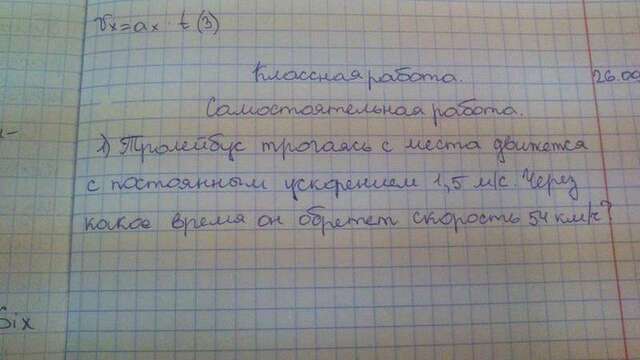 Vx=ax · t (3)
Классная работа.
26.09
Самостоятельная работа.
1) Тролейбус трогаясь с места движется
с постоянным ускорением 1,5 м/с. Через
какое время он обретет скорость 54 км/ч?
Six